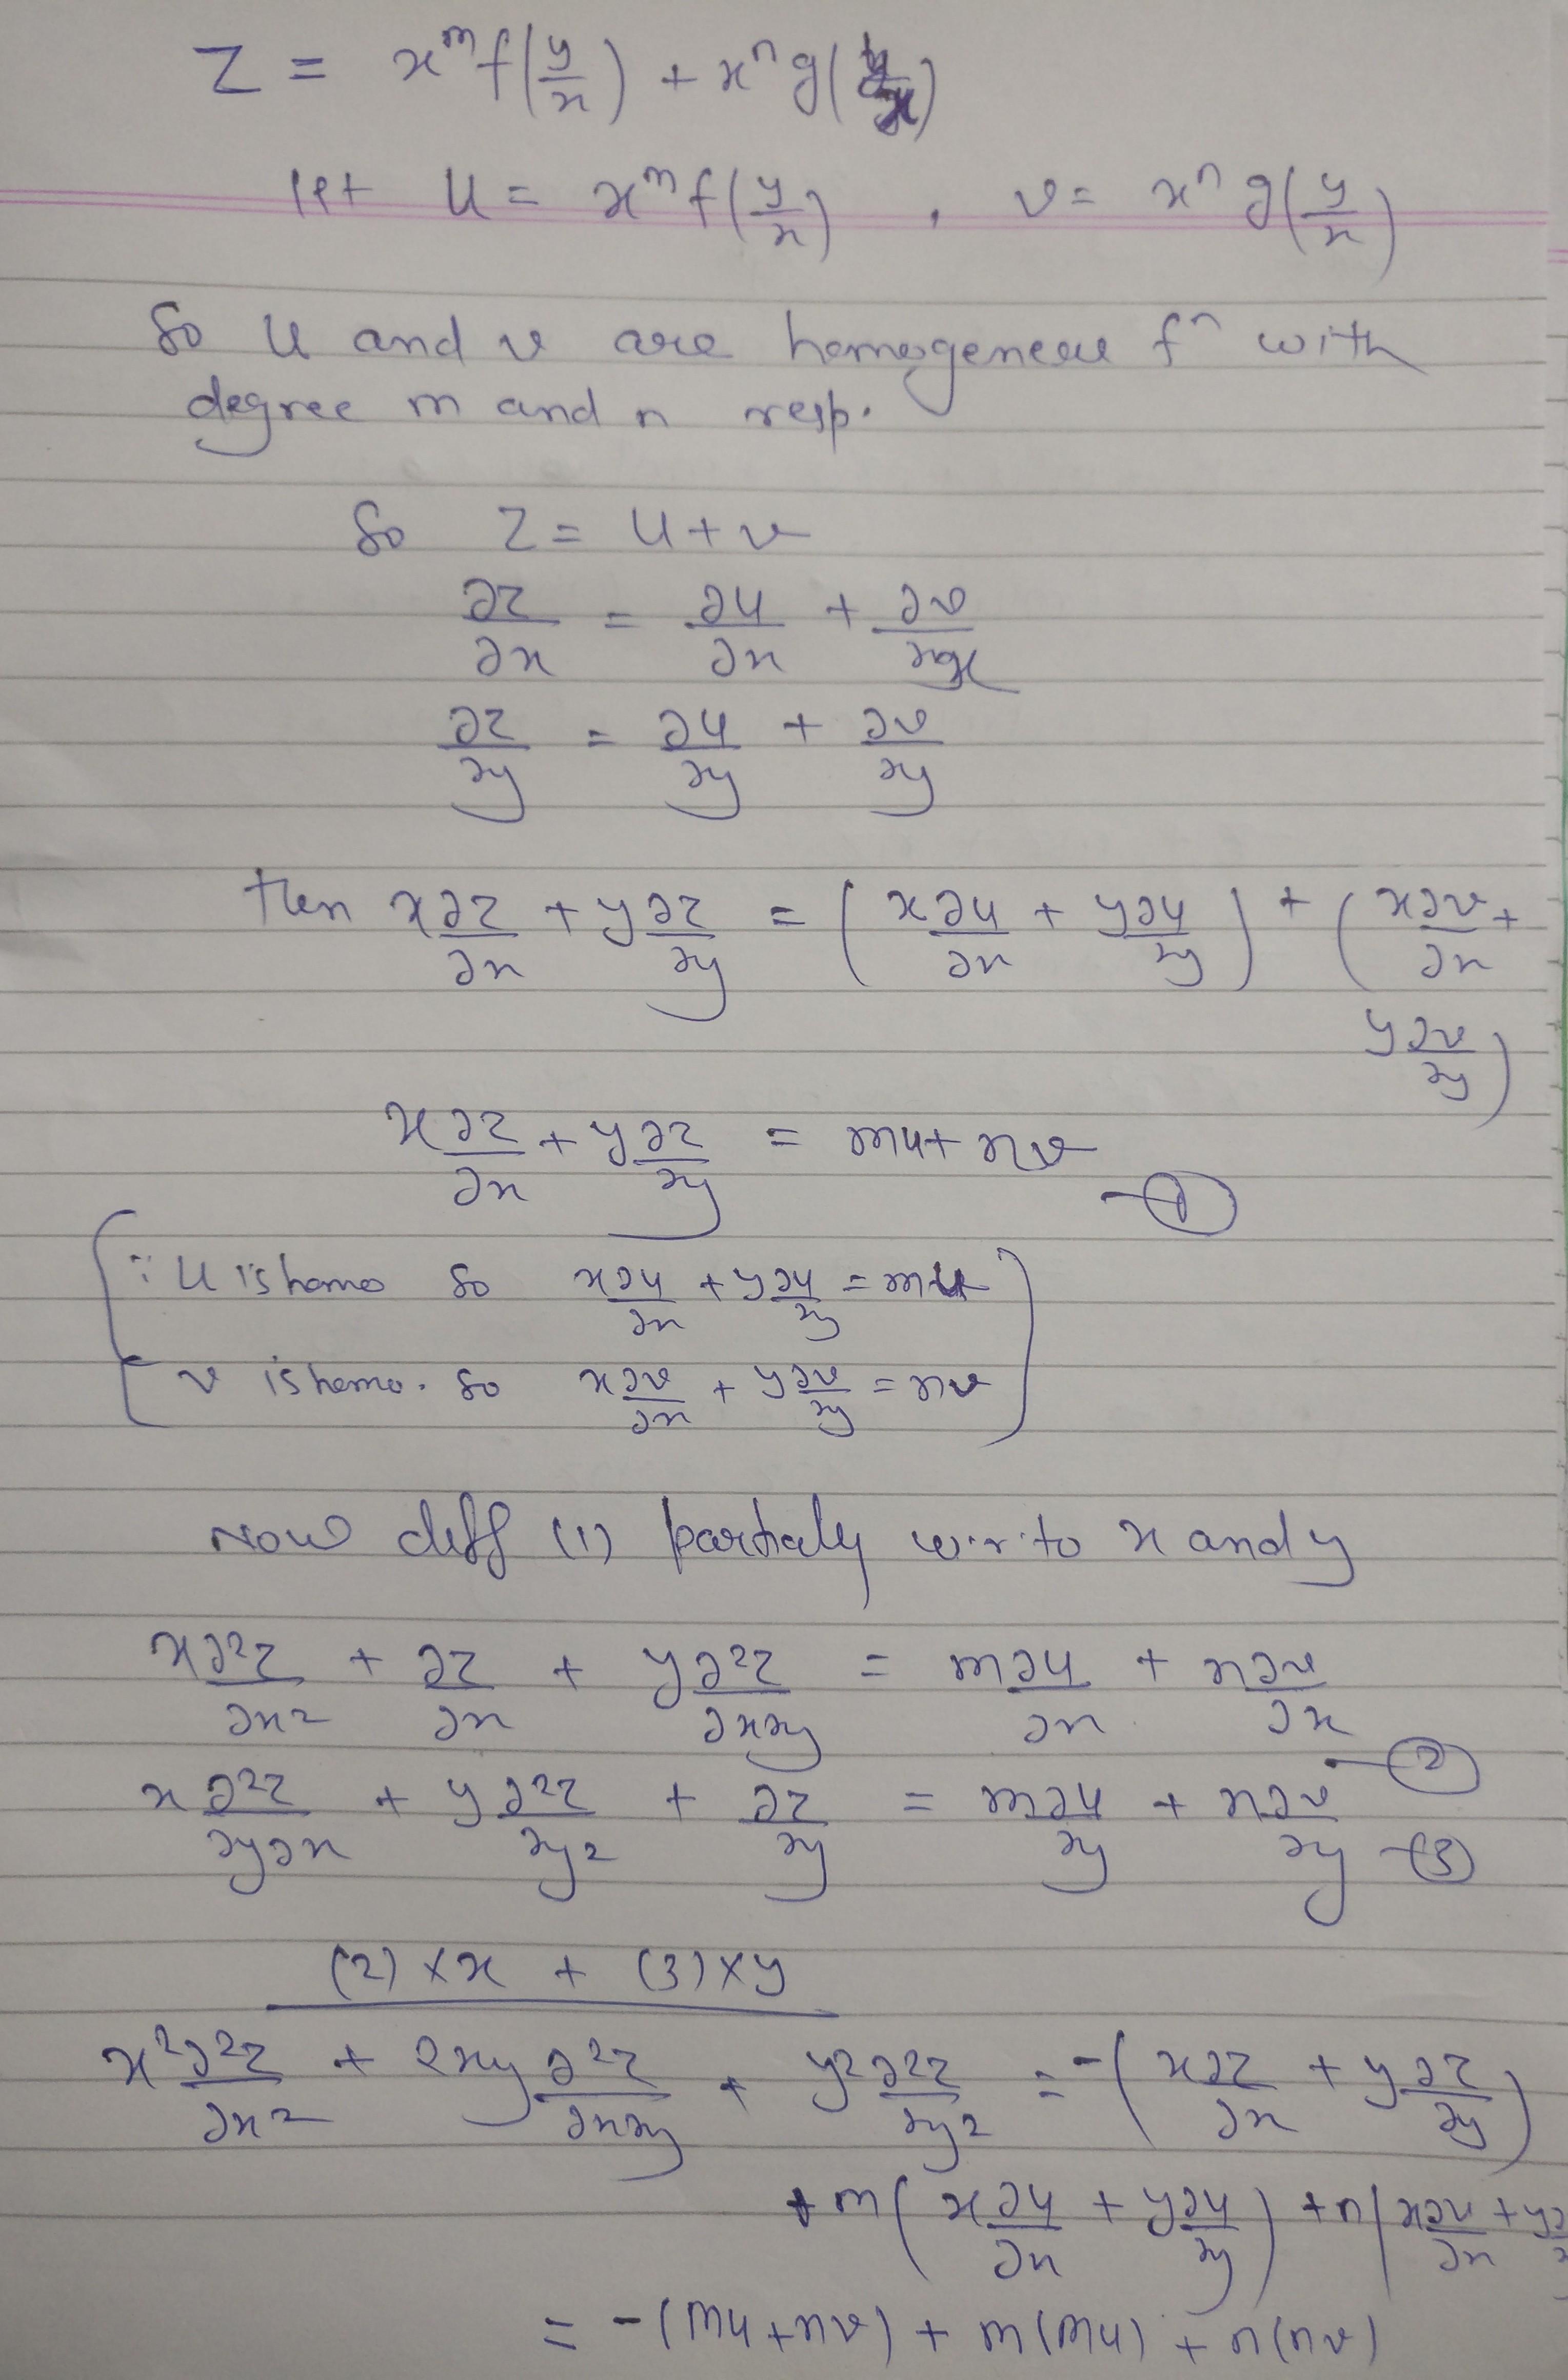 Z = x^m f(y/x) + x^n g(y/x)
let u = x^m f(y/x) , v = x^n g(y/x)
So u and v are homogeneous f^n with
degree m and n resp.
So Z = u + v
∂z/∂x = ∂u/∂x + ∂v/∂x
∂z/∂y = ∂u/∂y + ∂v/∂y
then x ∂z/∂x + y ∂z/∂y = ( x ∂u/∂x + y ∂u/∂y ) + ( x ∂v/∂x +
y ∂v/∂y )
x ∂z/∂x + y ∂z/∂y = mu + nv
—(1)
∵ u is homo so x ∂u/∂x + y ∂u/∂y = mu
v is homo. so x ∂v/∂x + y ∂v/∂y = nv
Now diff (1) partialy w.r.to x and y
x ∂²z/∂x² + ∂z/∂x + y ∂²z/∂x∂y = m ∂u/∂x + n ∂v/∂x
—(2)
x ∂²z/∂y∂x + y ∂²z/∂y² + ∂z/∂y = m ∂u/∂y + n ∂v/∂y —(3)
(2) × x + (3) × y
x² ∂²z/∂x² + 2xy ∂²z/∂x∂y + y² ∂²z/∂y² = -( x ∂z/∂x + y ∂z/∂y )
+ m ( x ∂u/∂x + y ∂u/∂y ) + n ( x ∂v/∂x + y ∂
= -(mu + nv) + m(mu) + n(nv)